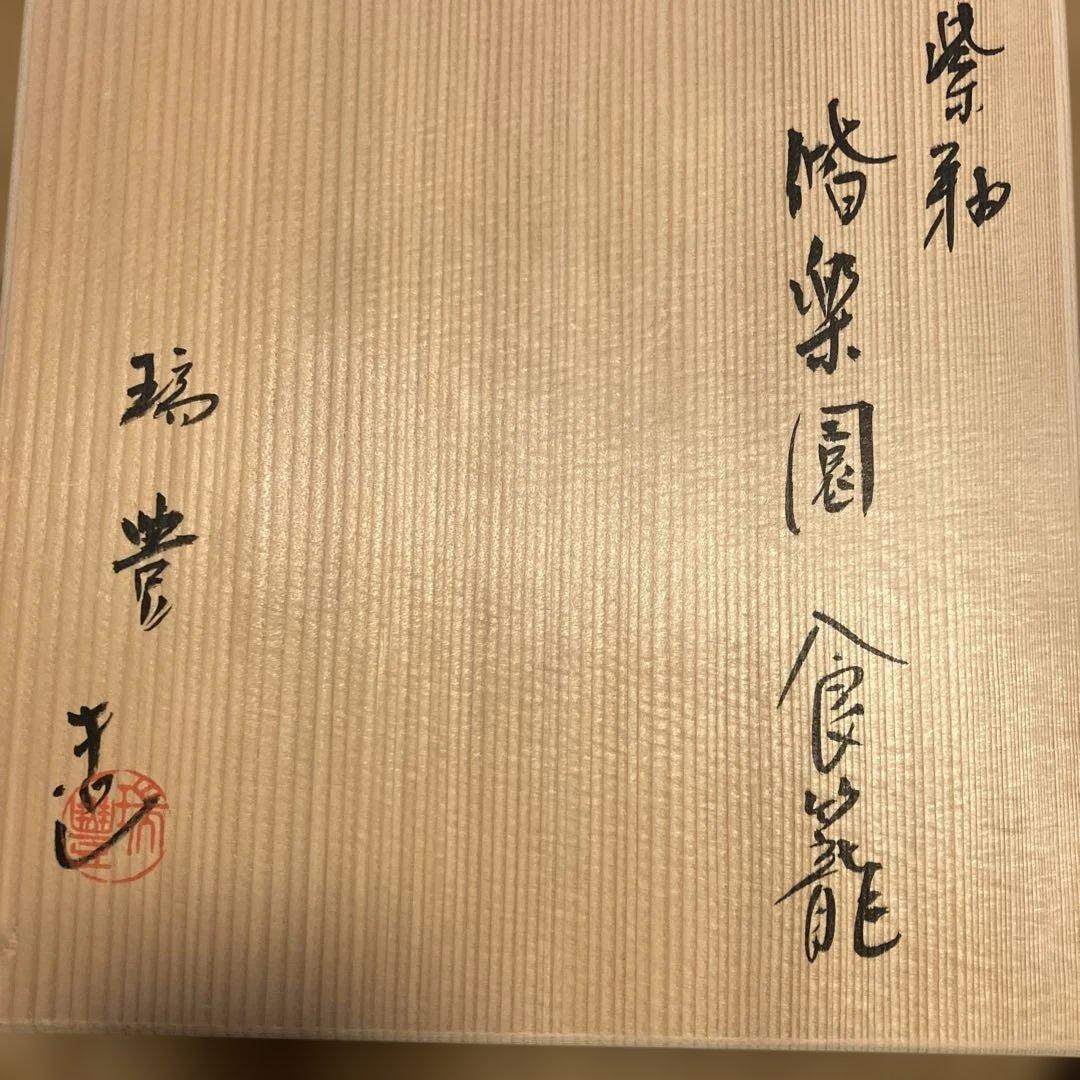 紫釉
偕楽園 食籠
瑞豊 造
瑞豊